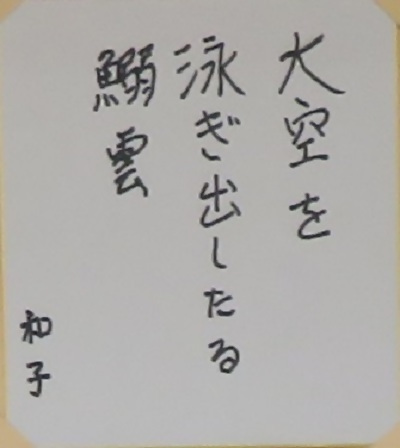 大空を
泳ぎ出したる
鰯雲
和子